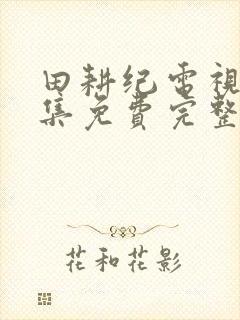 田耕纪电視
集免費完整
花和花影